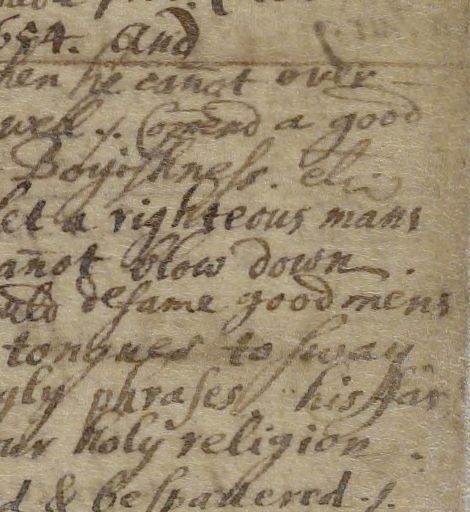 654. And
hen he canot over
well /. Com̄end a good
Boyishness. etc
let a righteous mans
anot blow down.
uld defame good mens
tongues to sway
gly phrases his far
ur holy religion.
d & bespattered. /.